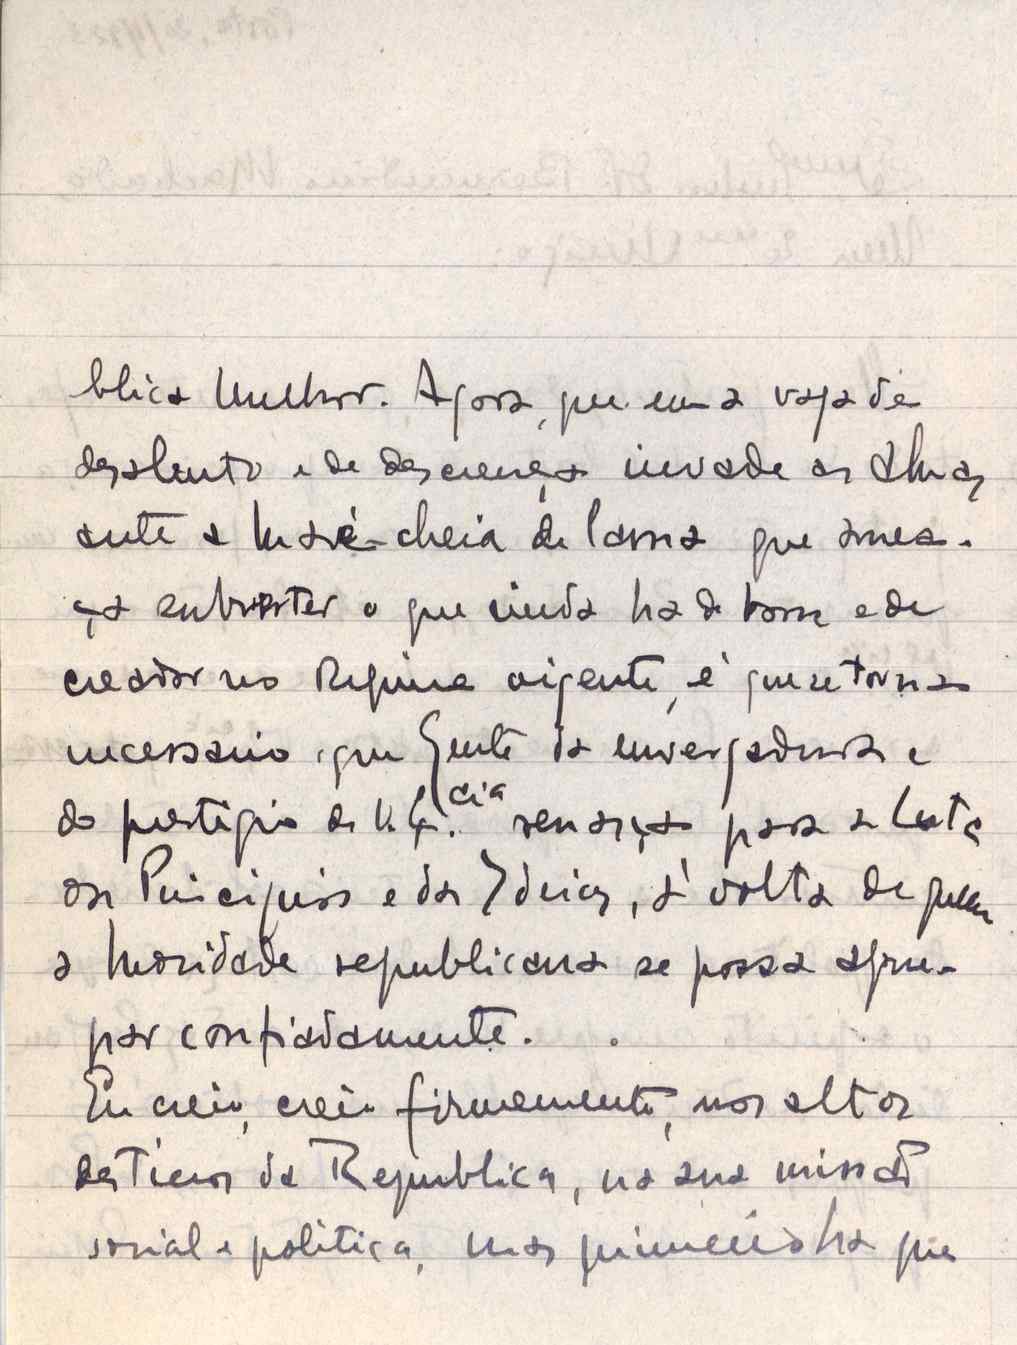 blica melhor. Agora, que uma vaga de
desalento e de descrença invade as almas
ante a maré-cheia de lama que amea-
ça subverter o que ainda ha de bom e de
creador no Regime vigente, é que se torna
necessario, que Gente da envergadura e
do prestigio de V. Ex.cia renasça para a luta
dos Principios e das Ideias, á volta de quem
a mocidade republicana se possa agru-
par confiadamente.
Eu creio, creio firmemente, nos altos
destinos da Republica, na sua missão
social e politica, mas primeiro ha que